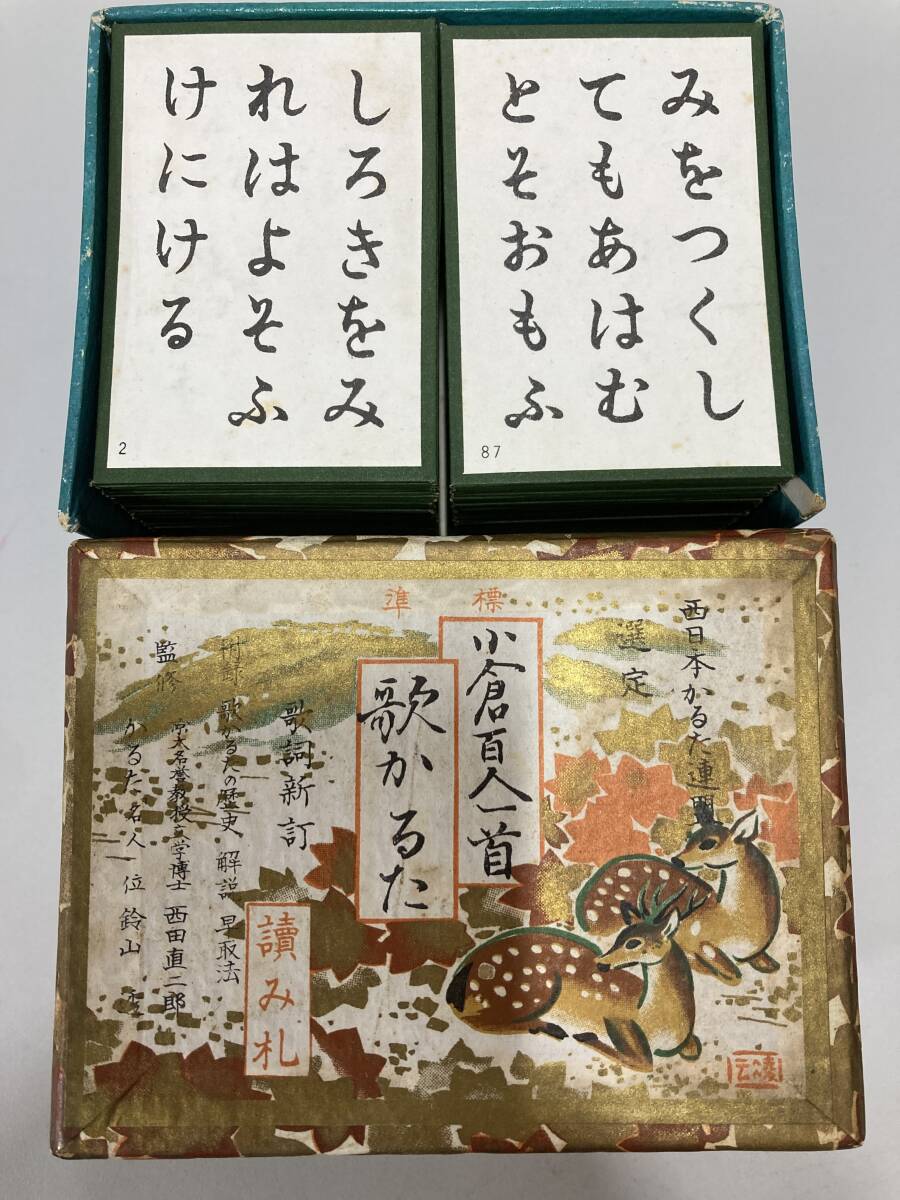 みをつくし
てもあはむ
とそおもふ
87
しろきをみ
れはよそふ
けにける
2
西日本かるた連盟
選定
標準
小倉百人一首
歌かるた
歌詞新訂
讀み札
附録 歌かるたの歴史 解説 早取法
監修
京大名誉教授文学博士 西田直二郎
かるた名人位 鈴山